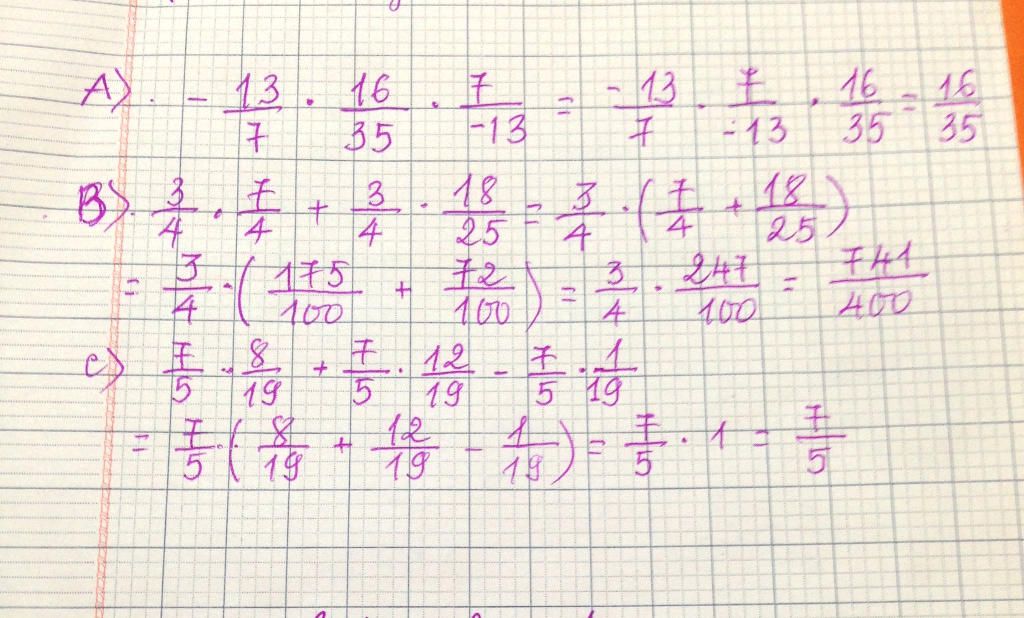 A) . - 13/7 · 16/35 · 7/-13 = -13/7 · 7/-13 · 16/35 = 16/35
B) 3/4 · 7/4 + 3/4 · 18/25 = 3/4 · (7/4 + 18/25)
= 3/4 · (175/100 + 72/100) = 3/4 · 247/100 = 741/400
C) 7/5 · 8/19 + 7/5 · 12/19 - 7/5 · 1/19
= 7/5 · (8/19 + 12/19 - 1/19) = 7/5 · 1 = 7/5